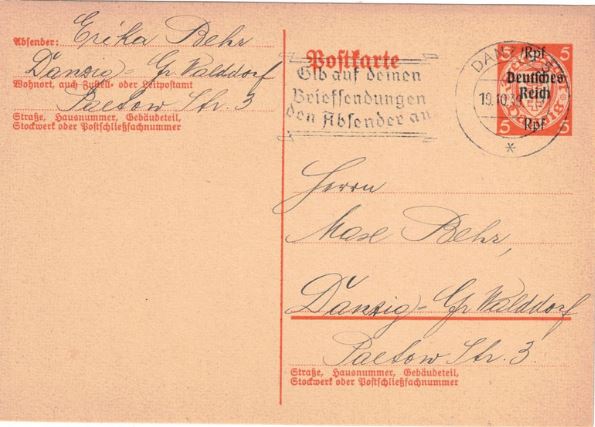 Absender: Erika Behr
Danzig-Gr Walddorf
Wohnort, auch Zustell- oder Leitpostamt
Paetow Str. 3
Straße, Hausnummer, Gebäudeteil,
Stockwerk oder Postschließfachnummer
Postkarte
Gib auf deinen
Briefsendungen
den Absender an
DANZIG
19.10.39
*
5 Rpf 5
Deutsches
Reich
5 Rpf
Herrn
Max Behr,
Danzig-Gr Walddorf
Paetow Str. 3.
Straße, Hausnummer, Gebäudeteil,
Stockwerk oder Postschließfachnummer